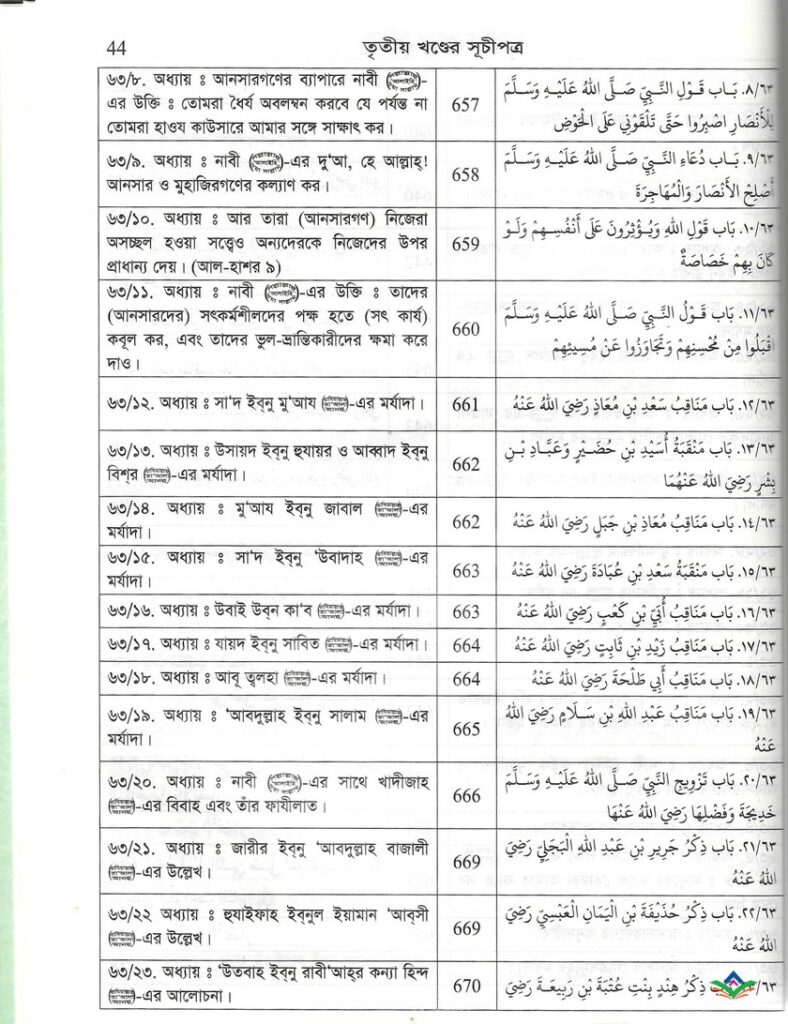 44
তৃতীয় খণ্ডের সূচীপত্র
৬৩/৮. অধ্যায় ঃ আনসারগণের ব্যাপারে নাবী (ﷺ)-
এর উক্তি ঃ তোমরা ধৈর্য অবলম্বন করবে যে পর্যন্ত না
তোমরা হাওয কাউসারে আমার সঙ্গে সাক্ষাৎ কর।
657
٨/٦٣. بَاب قَوْلِ النَّبِيِّ صَلَّى اللهُ عَلَيْهِ وَسَلَّمَ
لِلْأَنْصَارِ اصْبِرُوا حَتَّى تَلْقَوْنِي عَلَى الْحَوْضِ
৬৩/৯. অধ্যায় ঃ নাবী (ﷺ)-এর দু‘আ, হে আল্লাহ!
আনসার ও মুহাজিরগণের কল্যাণ কর।
658
٩/٦٣. بَاب دُعَاءِ النَّبِيِّ صَلَّى اللهُ عَلَيْهِ وَسَلَّمَ
أَصْلِحْ الأَنْصَارَ وَالْمُهَاجِرَةَ
৬৩/১০. অধ্যায় ঃ আর তারা (আনসারগণ) নিজেরা
অসচ্ছল হওয়া সত্ত্বেও অন্যদেরকে নিজেদের উপর
প্রাধান্য দেয়। (আল-হাশর ৯)
659
١٠/٦٣. بَاب قَوْلِ اللهِ وَيُؤْثِرُونَ عَلَى أَنْفُسِهِمْ وَلَوْ
كَانَ بِهِمْ خَصَاصَةٌ
৬৩/১১. অধ্যায় ঃ নাবী (ﷺ)-এর উক্তি ঃ তাদের
(আনসারদের) সৎকর্মশীলদের পক্ষ হতে (সৎ কার্য)
কবূল কর, এবং তাদের ভুল-ভ্রান্তিকারীদের ক্ষমা করে
দাও।
660
١١/٦٣. بَاب قَوْلُ النَّبِيِّ صَلَّى اللهُ عَلَيْهِ وَسَلَّمَ
اقْبَلُوا مِنْ مُحْسِنِهِمْ وَتَجَاوَزُوا عَنْ مُسِيئِهِمْ
৬৩/১২. অধ্যায় ঃ সা‘দ ইব্‌নু মু‘আয (রাঃ)-এর মর্যাদা।
661
١٢/٦٣. بَاب مَنَاقِبُ سَعْدِ بْنِ مُعَاذٍ رَضِيَ اللهُ عَنْهُ
৬৩/১৩. অধ্যায় ঃ উসায়দ ইব্‌নু হুযায়র ও আব্বাদ ইব্‌নু
বিশ্‌র (রাঃ)-এর মর্যাদা।
662
١٣/٦٣. بَاب مَنْقَبَةُ أُسَيْدِ بْنِ حُضَيْرٍ وَعَبَّادِ بْنِ
بِشْرٍ رَضِيَ اللهُ عَنْهُمَا
৬৩/১৪. অধ্যায় ঃ মু‘আয ইব্‌নু জাবাল (রাঃ)-এর
মর্যাদা।
662
١٤/٦٣. بَاب مَنَاقِبُ مُعَاذِ بْنِ جَبَلٍ رَضِيَ اللهُ عَنْهُ
৬৩/১৫. অধ্যায় ঃ সা‘দ ইব্‌নু ‘উবাদাহ (রাঃ)-এর
মর্যাদা।
663
١٥/٦٣. بَاب مَنْقَبَةُ سَعْدِ بْنِ عُبَادَةَ رَضِيَ اللهُ عَنْهُ
৬৩/১৬. অধ্যায় ঃ উবাই উব্‌ন কা‘ব (রাঃ)-এর মর্যাদা।
663
١٦/٦٣. بَاب مَنَاقِبُ أُبَيِّ بْنِ كَعْبٍ رَضِيَ اللهُ عَنْهُ
৬৩/১৭. অধ্যায় ঃ যায়দ ইব্‌নু সাবিত (রাঃ)-এর মর্যাদা।
664
١٧/٦٣. بَاب مَنَاقِبُ زَيْدِ بْنِ ثَابِتٍ رَضِيَ اللهُ عَنْهُ
৬৩/১৮. অধ্যায় ঃ আবূ ত্বলহা (রাঃ)-এর মর্যাদা।
664
١٨/٦٣. بَاب مَنَاقِبُ أَبِي طَلْحَةَ رَضِيَ اللهُ عَنْهُ
৬৩/১৯. অধ্যায় ঃ ‘আবদুল্লাহ ইব্‌নু সালাম (রাঃ)-এর
মর্যাদা।
665
١٩/٦٣. بَاب مَنَاقِبُ عَبْدِ اللهِ بْنِ سَلَامٍ رَضِيَ اللهُ
عَنْهُ
৬৩/২০. অধ্যায় ঃ নাবী (ﷺ)-এর সাথে খাদীজাহ
(রাঃ)-এর বিবাহ এবং তাঁর ফাযীলাত।
666
٢٠/٦٣. بَاب تَزْوِيجِ النَّبِيِّ صَلَّى اللهُ عَلَيْهِ وَسَلَّمَ
خَدِيجَةَ وَفَضْلِهَا رَضِيَ اللهُ عَنْهَا
৬৩/২১. অধ্যায় ঃ জারীর ইব্‌নু ‘আবদুল্লাহ বাজালী
(রাঃ)-এর উল্লেখ।
669
٢١/٦٣. بَاب ذِكْرُ جَرِيرِ بْنِ عَبْدِ اللهِ الْبَجَلِيِّ رَضِيَ
اللهُ عَنْهُ
৬৩/২২ অধ্যায় ঃ হুযাইফাহ ইব্‌নুল ইয়ামান ‘আব্‌সী
(রাঃ)-এর উল্লেখ।
669
٢٢/٦٣. بَاب ذِكْرُ حُذَيْفَةَ بْنِ الْيَمَانِ الْعَبْسِيِّ رَضِيَ
اللهُ عَنْهُ
৬৩/২৩. অধ্যায় ঃ ‘উতবাহ ইব্‌নু রাবী‘আহ্‌র কন্যা হিন্দ
(রাঃ)-এর আলোচনা।
670
/٦٣. ذِكْرُ هِنْدٍ بِنْتِ عُتْبَةَ بْنِ رَبِيعَةَ رَضِيَ